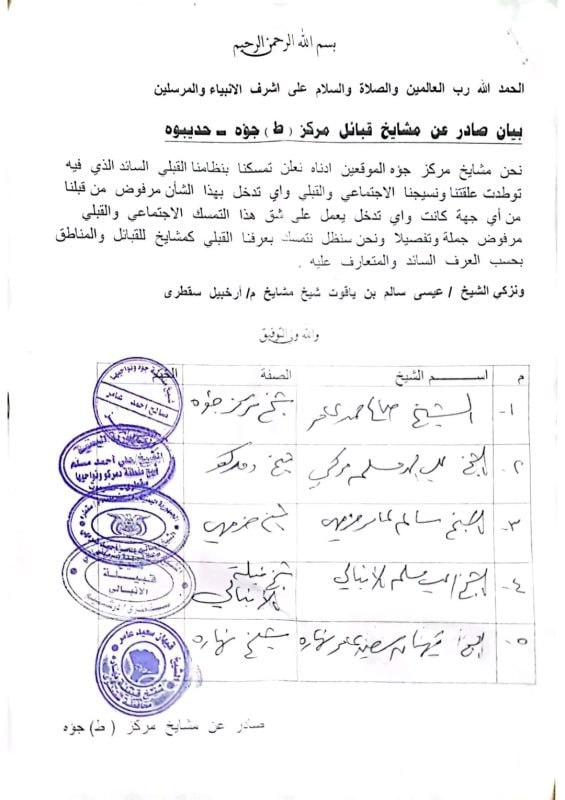 بسم الله الرحمن الرحيم
الحمد الله رب العالمين والصلاة والسلام على اشرف الانبياء والمرسلين
بيان صادر عن مشايخ قبائل مركز (ط) جؤه - حديبوه
نحن مشايخ مركز جؤه الموقعين ادناه نعلن تمسكنا بنظامنا القبلي السائد الذي فيه
توطدت علقتنا ونسيجنا الاجتماعي والقبلي واي تدخل بهذا الشأن مرفوض من قبلنا
من أي جهة كانت واي تدخل يعمل على شق هذا التمسك الاجتماعي والقبلي
مرفوض جملة وتفصيلا ونحن سنظل نتمسك بعرفنا القبلي كمشايخ للقبائل والمناطق
بحسب العرف السائد والمتعارف عليه .
ونزكي الشيخ / عيسى سالم بن ياقوت شيخ مشايخ م/ أرخبيل سقطرى
والله ولي التوفيق
م اسم الشيخ الصفة الختم
١- الشيخ صالح احمد عامر شيخ مركز جؤه
صالح احمد عامر
٢- الشيخ علي احمد مسلم شيخ دمركو
علي أحمد مسلم
شيخ منطقة دمركو ونواحيها
٣- الشيخ سالم عامر شيخ
٤- الشيخ مسلم الانبالي شيخ قبيلة الانبالي
قبيلة
الانبالي
٥- الشيخ سعيد عامر نهاره شيخ نهاره
سعيد عامر
صادر عن مشايخ مركز (ط) جؤه